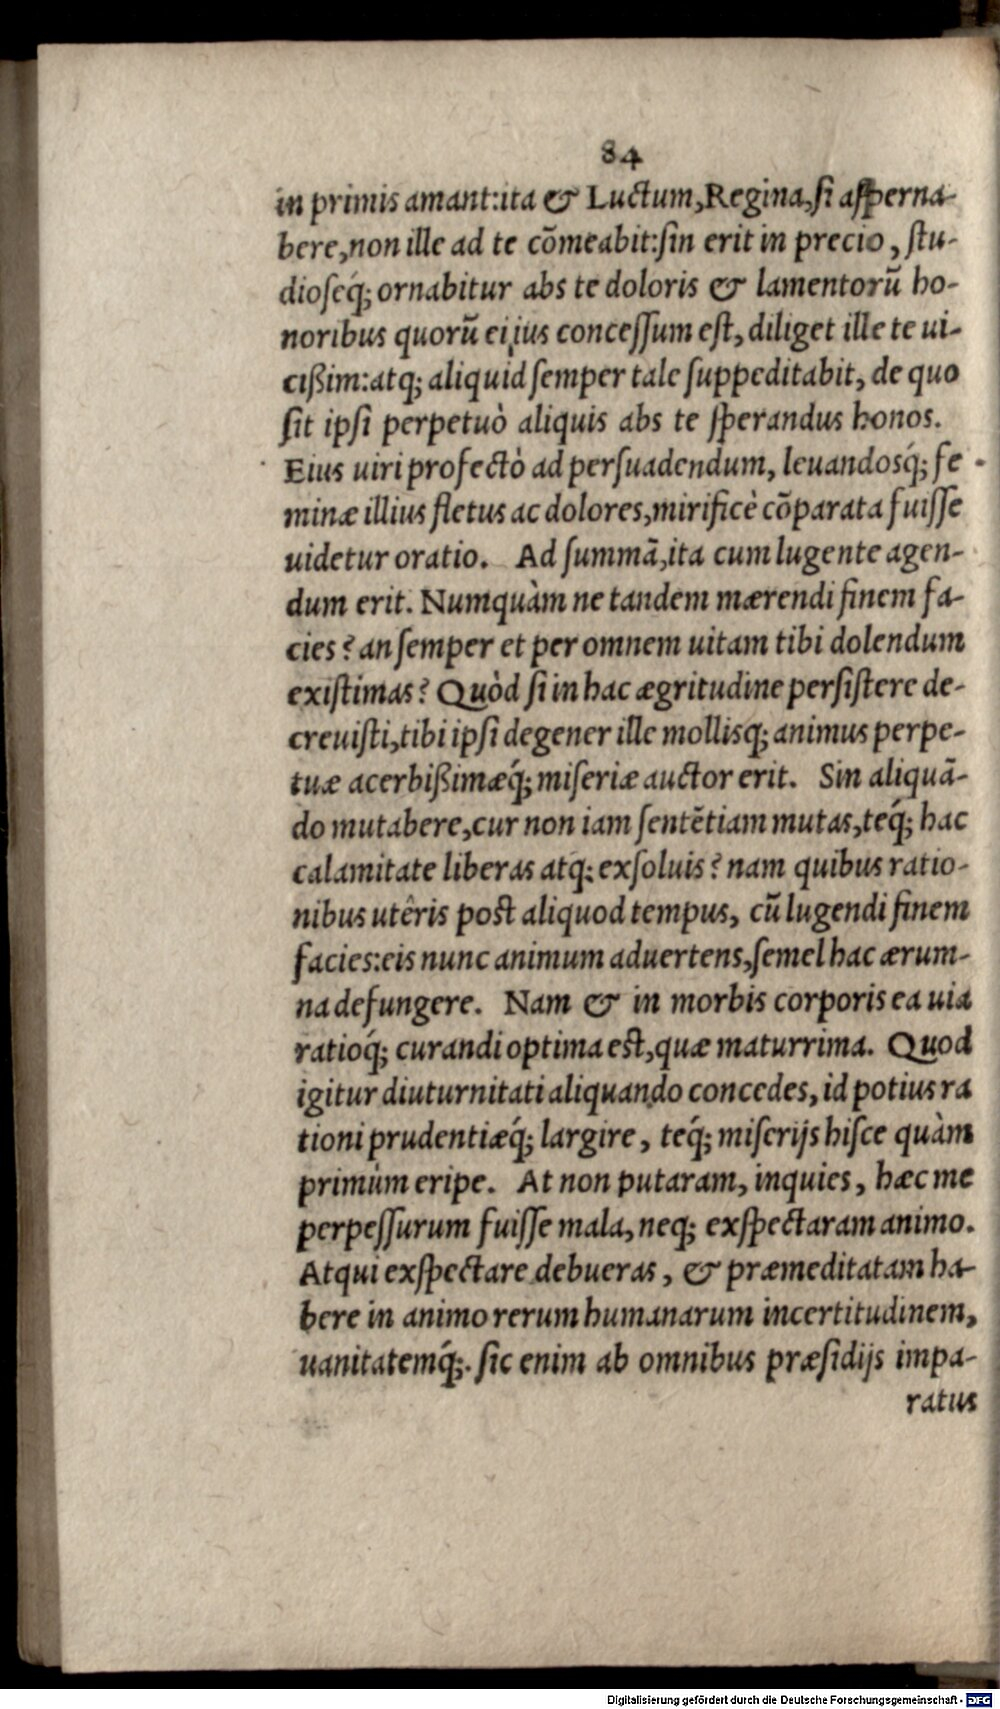 84
in primis amant:ita & Luctum,Regina,ſi aſperna-
bere,non ille ad te cōmeabit:ſin erit in precio, ſtu-
dioſeq́; ornabitur abs te doloris & lamentorū ho-
noribus quorū ei ius conceſſum eſt, diliget ille te ui-
cißim:atq; aliquid ſemper tale ſuppeditabit, de quo
ſit ipſi perpetuò aliquis abs te ſperandus honos.
Eius uiri profectò ad perſuadendum, leuandosq́; fe
minæ illius fletus ac dolores,mirificè cōparata fuiſſe
uidetur oratio. Ad ſummā,ita cum lugente agen-
dum erit. Numquàm ne tandem mærendi finem fa-
cies? an ſemper et per omnem uitam tibi dolendum
exiſtimas? Quòd ſi in hac ægritudine perſiſtere de-
creuiſti,tibi ipſi degener ille mollisq; animus perpe-
tuæ acerbißimæq́; miſeriæ auctor erit. Sin aliquā-
do mutabere,cur non iam ſentētiam mutas,teq́; hac
calamitate liberas atq; exſoluis? nam quibus ratio-
nibus utêris poſt aliquod tempus, cū lugendi finem
facies:eis nunc animum aduertens,ſemel hac ærum-
na defungere. Nam & in morbis corporis ea uia
ratioq́; curandi optima eſt,quæ maturrima. Quod
igitur diuturnitati aliquando concedes, id potius ra
tioni prudentiæq́; largire, teq́; miſerijs hiſce quàm
primùm eripe. At non putaram, inquies, hæc me
perpeſſurum fuiſſe mala, neq; exſpectaram animo.
Atqui exſpectare debueras, & præmeditatam ha-
bere in animo rerum humanarum incertitudinem,
uanitatemq́;. ſic enim ab omnibus præſidijs impa-
ratus
Digitalisierung gefördert durch die Deutsche Forschungsgemeinschaft - DFG